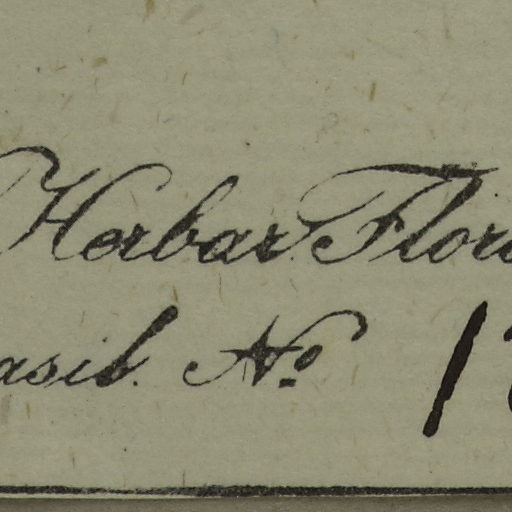 Herbar. Flor
asil. No
1